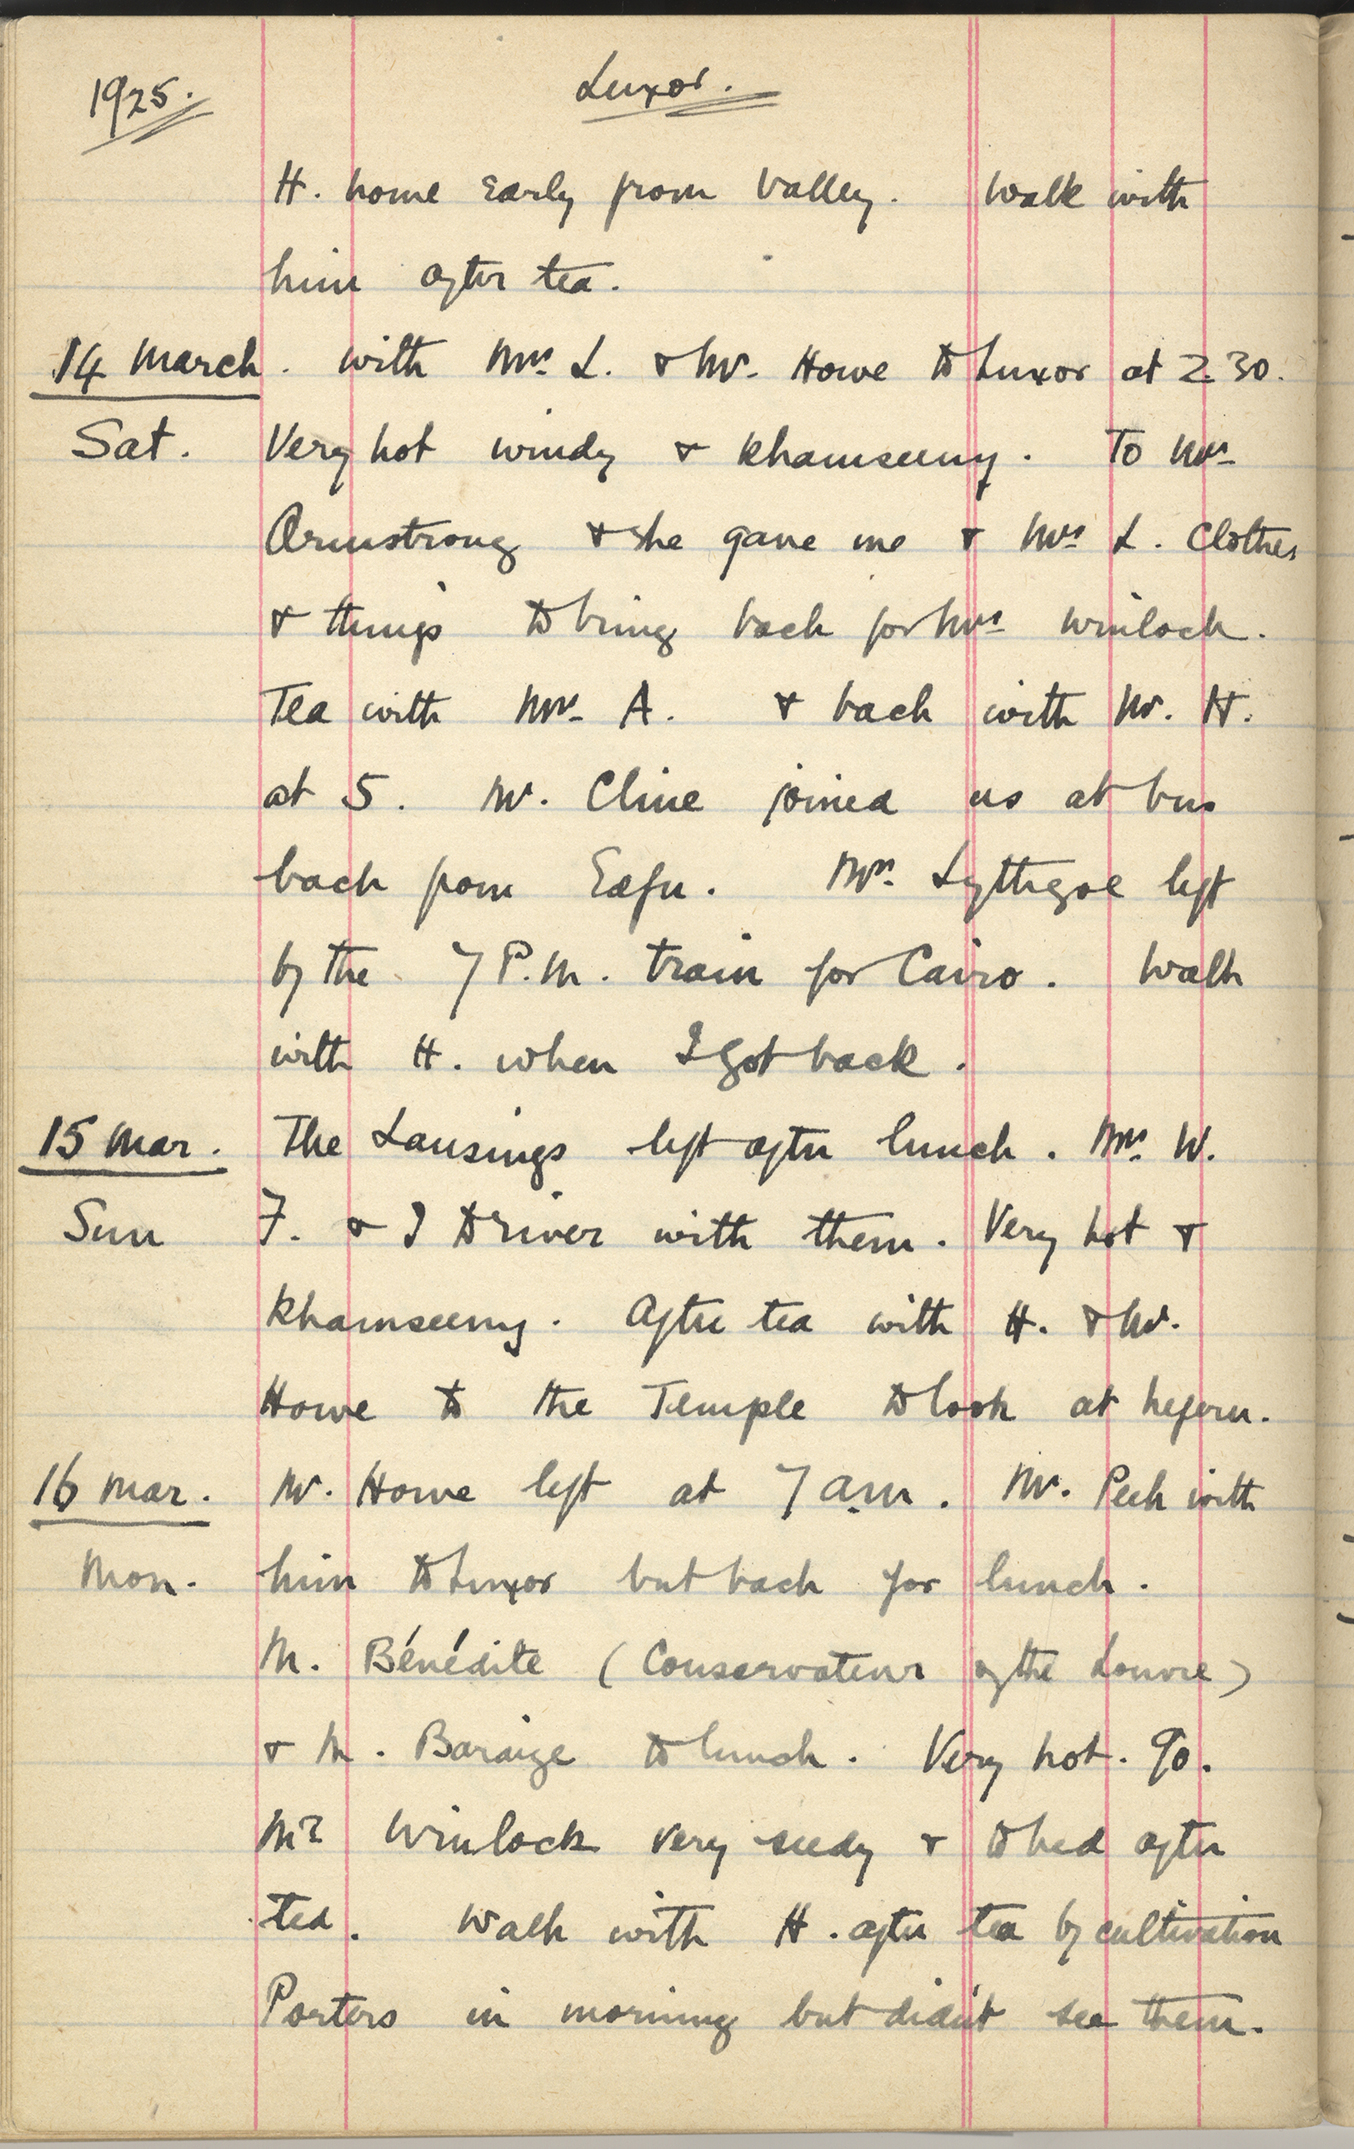 1925. Luxor.
H. home early from Valley. Walk with
him after tea.
14 March. with Mrs L. & Mr. Howe to Luxor at 2.30.
Sat. Very hot windy & khamseeny. To Mrs
Armstrong & she gave me & Mrs L. clothes
& things to bring back for Mrs Winlock.
Tea with Mrs A. & back with Mr. H.
at 5. Mr. Cline joined us at bus
back from Edfu. Mrs. Lythgoe left
by the 7 P.M. train for Cairo. Walk
with H. when I got back.
15 Mar. The Lansings left after lunch. Mrs. W.
Sun F. & I to river with them. Very hot &
khamseeny. After tea with H. & Mr.
Howe to the Temple to look at
16 Mar. Mr. Howe left at 7 a.m. Mr. Peek with
Mon. him to Luxor but back for lunch.
M. Bénédite (Conservateur of the Louvre)
& M. Baraize to lunch. Very hot. 90.
Mr Winlock very seedy & to bed after
tea. Walk with H. after tea by cultivation
Porters in morning but didn't see them.